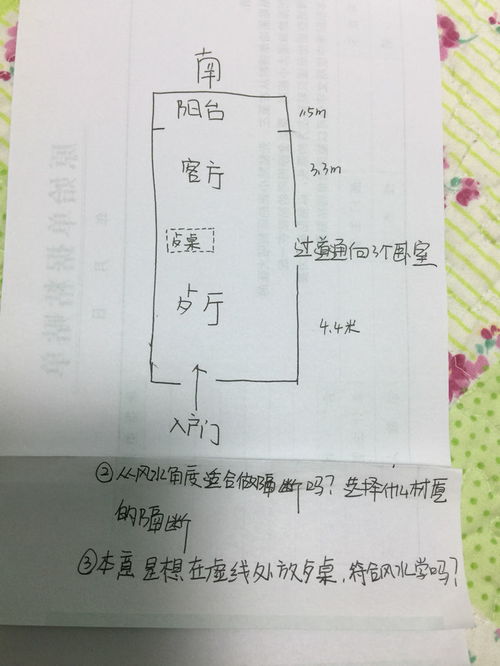 南
阳台
1.5m
客厅
3.3m
歺桌
过道通向3个卧室
歺厅
4.4米
入户门
②从风水角度适合做隔断吗？选择什么材质
的隔断
③本意是想在虚线处放歺桌，符合风水学吗？